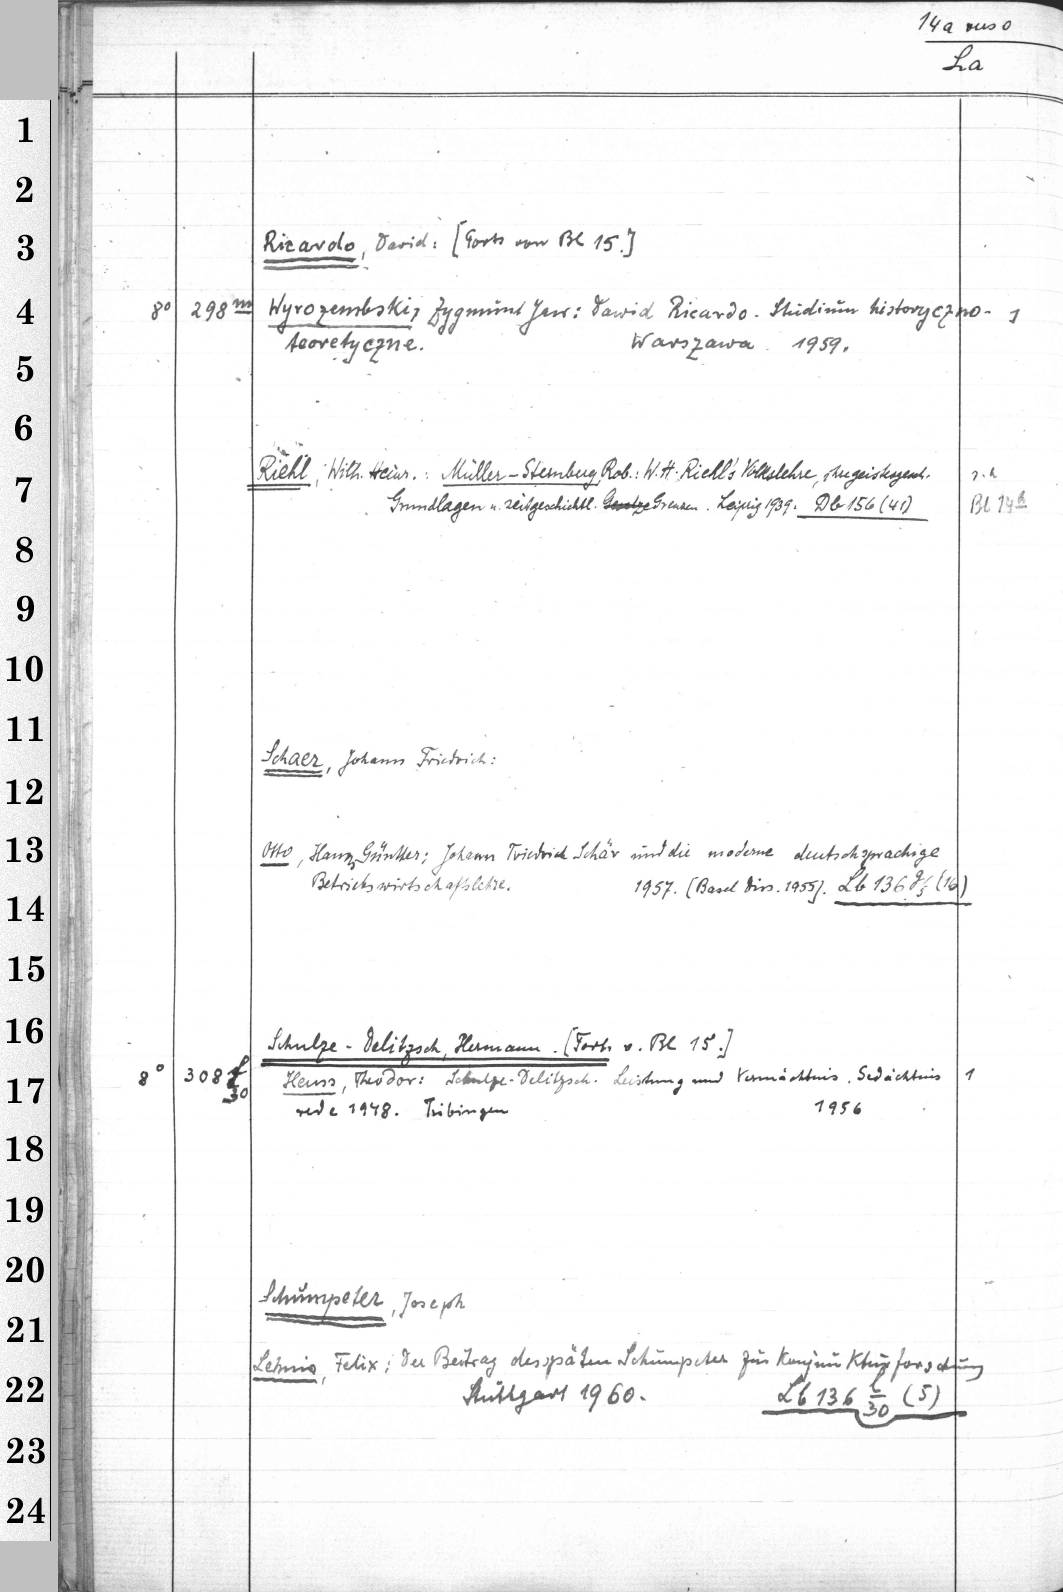 14a verso
La
1
2
3
Ricardo, David: [Forts von Bl 15.]
4
8° 298 m Wyrozembskij Zygmunt Jan: Dawid Ricardo. Studium historyczno- 1
teoretyczne. Warszawa 1959.
5
6
Riehl, Wilh. Heinr.: Müller-Sternberg, Rob.: W. H. Riehl's Volkslehre, s.h
7
Grundlagen u. zeitgeschichtl. Gesetze Grenzen. Leipzig 1939. Db 156 (41) Bl 14b
8
9
10
11
Schaer, Johann Friedrich:
12
13
Otto, Hans Günther; Johann Friedrich Schär und die moderne deutschsprachige
Betriebswirtschaftslehre. 1957. [Basel Diss. 1955]. Lb 136 g/5 (16)
14
15
16
Schulze-Delitzsch, Hermann. [Forts. v. Bl 15.]
17
8° 308 f/30 Heuss, Theodor: Schulze-Delitzsch. Leistung und Vermächtnis. Gedächtnis 1
rede 1948. Tübingen 1956
18
19
20
Schumpeter, Joseph
21
Felix; Der Beitrag des späten Schumpeter zur Konjunkturforschung
22
Stuttgart 1960. Lb 136 l/30 (5)
23
24